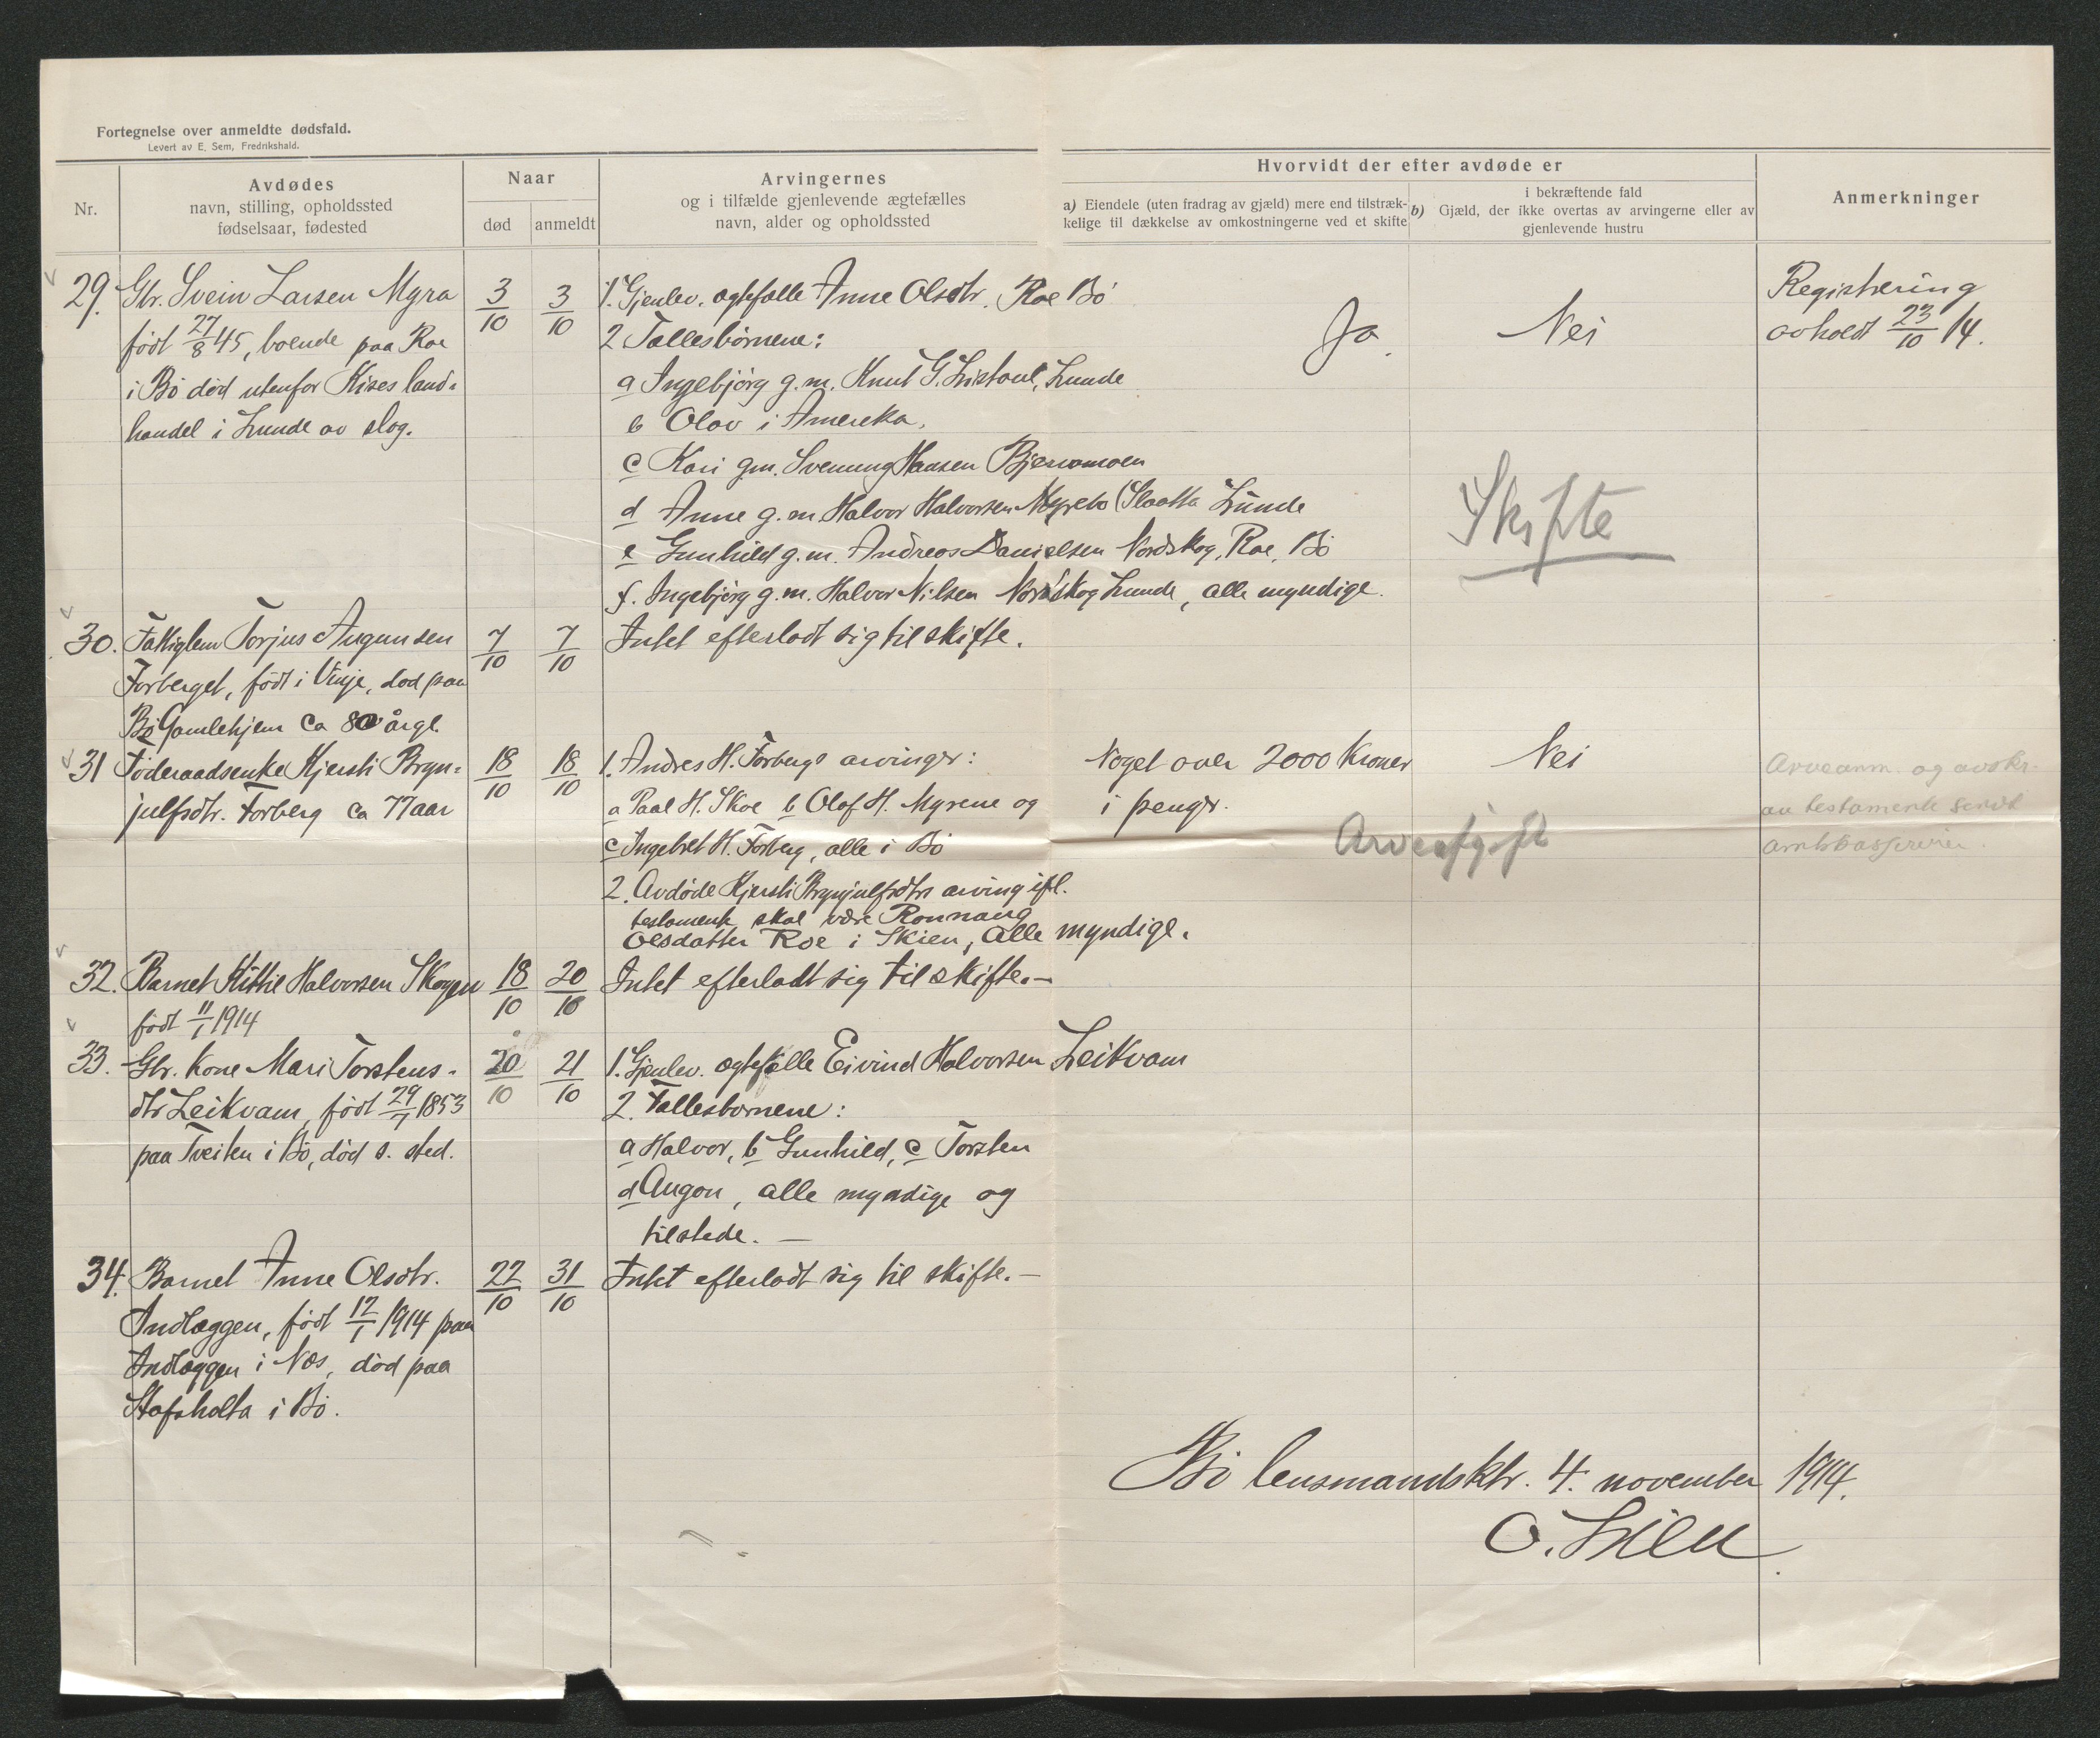 Fortegnelse over anmeldte dødsfald.
Levert av E. Sem, Fredrikshald.
Nr.
Avdødes
navn, stilling, opholdssted
fødselsaar, fødested
Naar
død
anmeldt
Arvingernes
og i tilfælde gjenlevende ægtefælles
navn, alder og opholdssted
Hvorvidt der efter avdøde er
a) Eiendele (uten fradrag av gjæld) mere end tilstræk-
kelige til dækkelse av omkostningerne ved et skifte
i bekræftende fald
b) Gjæld, der ikke overtas av arvingerne eller av
gjenlevende hustru
Anmerkninger
29. Gbr. Svein Larsen Myra
født 27/8 45, boende paa Roe
i Bø død utenfor Kises land-
handel i Lunde av slag.
3/10
3/10
1. Gjenlev. ægtefælle Anne Olsdtr. Roe Bø
2 Fællesbørnene:
a Ingebjørg g.m. Knut G. Listaul, Lunde
b Olav i Amereka.
c Kari gm. Svenung Hansen
d Anne g.m. Halvor Halvorsen Myrebø (Slaatta Lunde
e Gunhild g.m. Andreas Danielsen Nordskog, Roe, Bø
f. Ingebjørg g.m. Halvor Nilsen Nordskog Lunde, alle myndige.
Ja
Nei
Registrering
avholdt 23/10 14.
Skifte
30. Fattiglem Torjus Augunsen
Forberget, født i Vinje, død paa
Bø Gamlehjem ca 80 årgl.
7/10
7/10
Intet efterladt sig til skifte.
31 Føderaadsenke Kjersti Bryn-
julfsdtr. Forberg ca 77 aar
18/10
18/10
1. Andres H. Forbergs arvinger:
a Paal H. Skoe b Olof H. Myrene og
c Ingebret H. Forberg, alle i Bø
2. Avdøde Kjersti Brynjulfsdtrs arving ifl.
testamente skal være Ronnaug
Olsdatter Roe i Skien, Alle myndige.
Noget over 2000 Kroner
i penger.
Nei
Arveafgift
Arveanm. og avskr.
av testamente sendt
amtskasserer.
32. Barnet Kittil Halvorsen Skogen
født 11/1 1914
18/10
20/10
Intet efterladt sig til skifte. –
33. Gbr. kone Mari Torstens-
dtr Leikvam, født 29/7 1853
paa Tveiten i Bø, død s. sted.
20/10
21/10
1. Gjenlev. ægtefælle Eivind Halvorsen Leikvam
2. Fællesbørnene:
a Halvor, b Gunhild, c Torsten
d Augon, alle myndige og
tilstede. –
34. Barnet Anne Olsdtr.
Indlæggen, født 12/1 1914 paa
Indlæggen i Nes, død paa
Stafsholta i Bø.
22/10
31/10
Intet efterladt sig til skifte. –
Bø lensmandsktr. 4. november 1914.